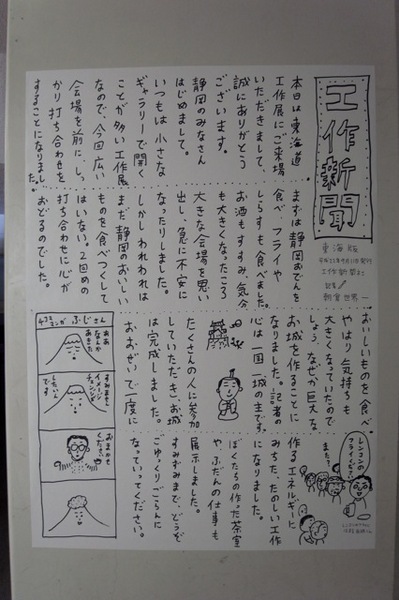 工作新聞
東海版
工作新聞社
記者
朝倉世界一
本日は東海道
工作展にご来場
いただきまして、
誠にありがとう
ございます。
静岡のみなさん
はじめまして。
いつもは小さな
ギャラリーで開く
ことが多い工作展
なので、今回広い
会場を前にしっ
かり打ち合わせを
することになりました。
まずは静岡おでんを
食べ、フライや
しらすも食べました。
お酒もすすみ、気分
も大きくなったころ
大きな会場を思い
出し、急に不安に
なったりしました。
しかしわれわれは
まだ静岡のおいしい
ものを食べつくして
はいない。2回めの
打ち合わせに心が
おどるのでした。
おいしいものを食べ、
やはり気持ちも
大きくなっていたので
しょう、なぜか巨大な
お城を作ることに
なりました。記者の
心は一国一城の主です。
たくさんの人に参加
していただき、お城
は完成しました。
おおぜいで一度に
作るエネルギーに
みちた、たのしい工作
になりました。
ぼくたちの作った茶室
や、ふだんの仕事も
展示しました。
すみずみまで、どうぞ
ごゆっくりごらんに
なっていってください。
レンコンの
フライだって
また?
4コママンガ ふじさん
ああ
なんか
あきた
すみません
イメージ
チェンジ
したいん
です
おまかせ
ください